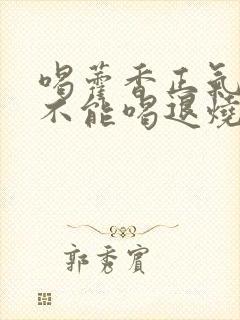 喝藿香正氣
不能喝退燒
郭秀賓